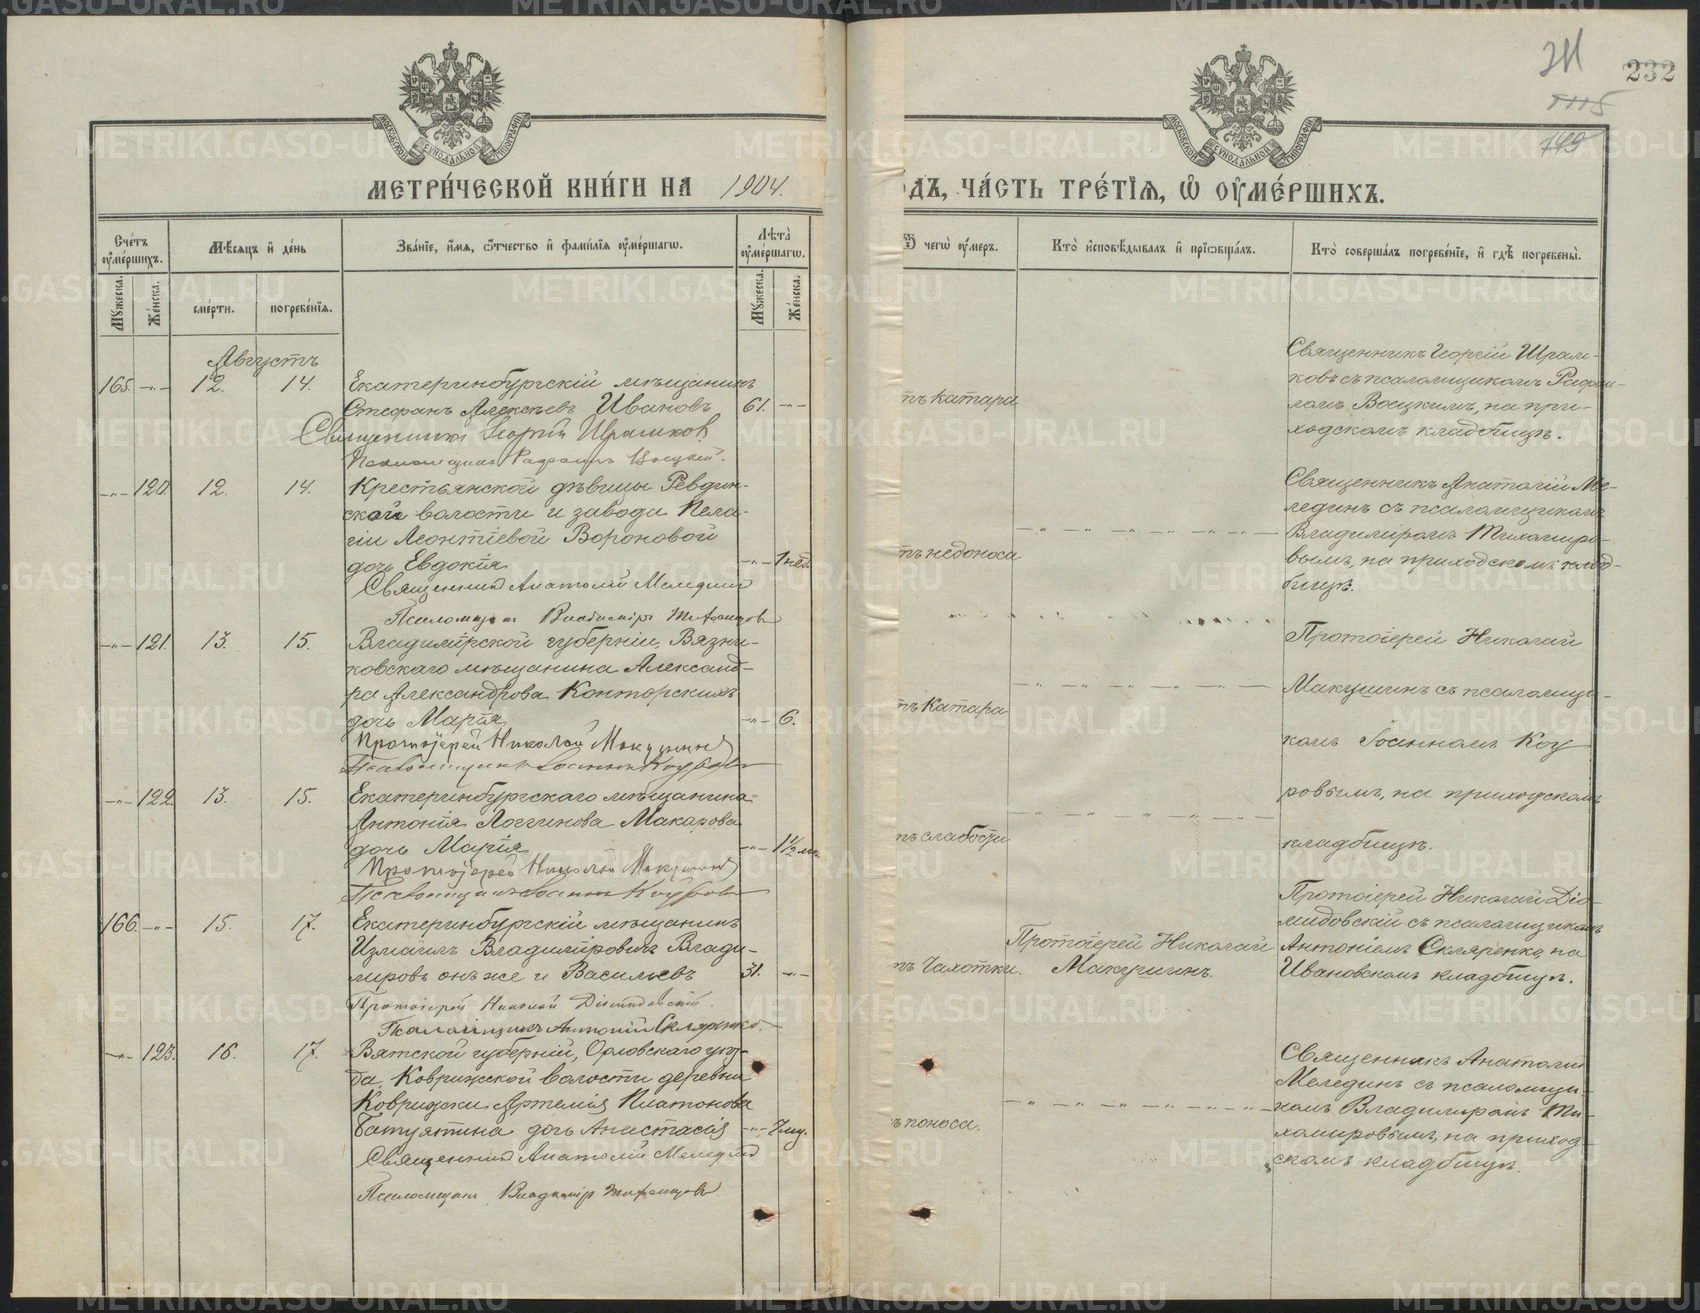 311
232
1115
149
МОСКОВСКОЙ СѴНОДАЛЬНОЙ ТИПОГРАФІИ
МОСКОВСКОЙ СѴНОДАЛЬНОЙ ТИПОГРАФІИ
МЕТРИ́ЧЕСКОЙ КНИ́ГИ НА 1904.
ОДЪ, ЧА́СТЬ ТРЕ́ТІѦ, Ѽ ОУ҆МЕ́РШИХЪ.
Сче́тъ оу҆ме́ршихъ.
Мѣ́сѧцъ и҆ де́нь
Зва́нїе, и҆́мѧ, ѻ҆́тчество и҆ фами́лїѧ оу҆ме́ршагѡ.
Лѣ́та оу҆ме́ршагѡ.
Ѿ чегѡ̀ оу҆́меръ.
Кто̀ и҆сповѣ́дывалъ и҆ прїѡбща́лъ.
Кто̀ соверша́лъ погребе́нїе, и҆ гдѣ̀ погребены̀.
Мꙋ́жеска.
Же́нска.
сме́рти.
погребе́нїѧ.
Мꙋ́жеска.
Же́нска.
Августъ
165. —"— 12. 14. Екатеринбургскій мѣщанинъ
Стефанъ Алексѣевъ Ивановъ 61. —"—
Священникъ Георгій Ирамков
Псаломщикъ Рафаилъ Воецкій.
тъ катара
Священникъ Георгій Ирам-
ковъ съ псаломщикомъ Рафаи-
ломъ Воецкимъ, на при-
ходскомъ кладбищѣ.
—"— 120. 12. 14. Крестьянской дѣвицы Ревдин-
ской волости и завода Пела-
гіи Леонтіевой Вороновой
дочь Евдокія —"— 1 нед.
Священникъ Анатолій Меледин
Псаломщикъ Владиміръ Тихомиров
тъ недоноса
Священникъ Анатолій Ме-
лединъ съ псаломщикомъ
Владиміромъ Тихомиро-
вымъ, на приходскомъ клад-
бищѣ.
—"— 121. 13. 15. Владимірской губерніи, Вязни-
ковскаго мѣщанина Александ-
ра Александрова Конторскихъ
дочь Марія —"— 6.
Протоіерей Николай Макушинъ
Псаломщикъ Іоаннъ Коуровъ
тъ катара
Протоіерей Николай
Макушинъ съ псаломщи-
комъ Іоанномъ Коу
ровымъ, на приходскомъ
кладбищѣ.
—"— 122. 13. 15. Екатеринбургскаго мѣщанина
Антонія Логгинова Макарова
дочь Марія —"— 1½ мѣс.
Протоіерей Николай Макушинъ
Псаломщикъ Іоаннъ Коуровъ
тъ слабости
166. —"— 15. 17. Екатеринбургскій мѣщанинъ
Измаилъ Владиміровичъ Влади-
міровъ онъ же и Васильевъ 31. —"—
Протоіерей Николай Діомидовскій.
Псаломщикъ Антоній Скляренко.
тъ чахотки.
Протоіерей Николай
Макушинъ.
Протоіерей Николай Діо-
мидовскій съ псаломщикомъ
Антоніемъ Скляренко, на
Ивановскомъ кладбищѣ.
—"— 123. 16. 17. Вятской губерніи, Орловскаго уѣз-
да, Коврижской волости деревни
Коврижки Артемія Платонова
Батуятина дочь Анастасія —"—
Священникъ Анатолій Меледин
Псаломщикъ Владиміръ Тихомировъ.
ъ поноса.
Священникъ Анатолій
Мелединъ съ псаломщи-
комъ Владиміромъ Ти-
хомировымъ, на приход-
скомъ кладбищѣ.
METRIKI.GASO-URAL.RU